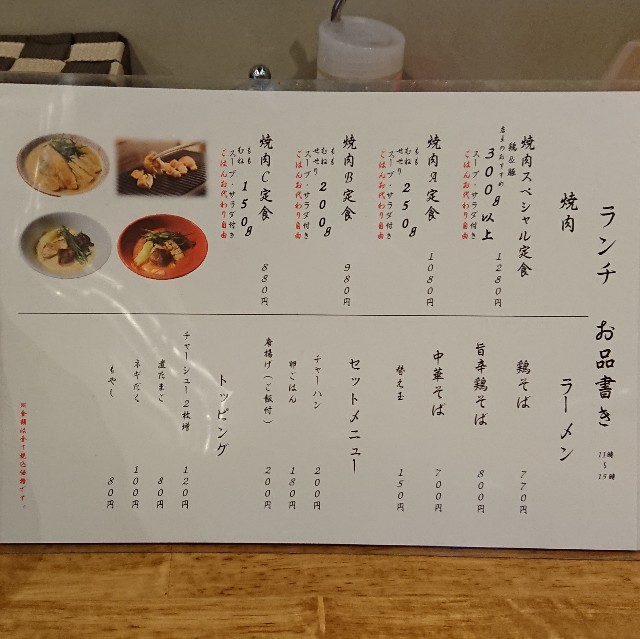 ランチ お品書き
11時～15時
焼肉
焼肉スペシャル定食
1280円
鶏&豚
店主のおすすめ
300g以上
スープ・サラダ付き
ごはんお代わり自由
焼肉A定食
1080円
もも
むね
せせり
250g
スープ・サラダ付き
ごはんお代わり自由
焼肉B定食
980円
もも
むね
せせり
200g
スープ・サラダ付き
ごはんお代わり自由
焼肉C定食
880円
もも
むね
150g
スープ・サラダ付き
ごはんお代わり自由
ラーメン
鶏そば 770円
旨辛鶏そば 800円
中華そば 700円
替え玉 150円
セットメニュー
チャーハン 200円
卵ごはん 180円
唐揚げ(ご飯付) 200円
トッピング
チャーシュー2枚増 120円
煮たまご 80円
ネギだく 100円
もやし 80円
※金額は全て税込価格です。